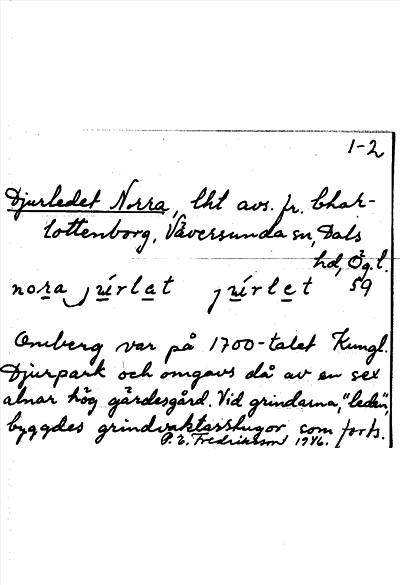 1-2
Djurledet Norra, lht avs. fr. Char-
lottenborg, Väversunda sn, Dals
hd, Ög. l.
nora júrlat júrlet 59
Omberg var på 1700-talet Kungl.
Djurpark och omgavs då av en sex
alnar hög gärdesgård. Vid grindarna, "leden",
byggdes grindvaktarstugor som forts.
P. E. Fredriksson 1946.